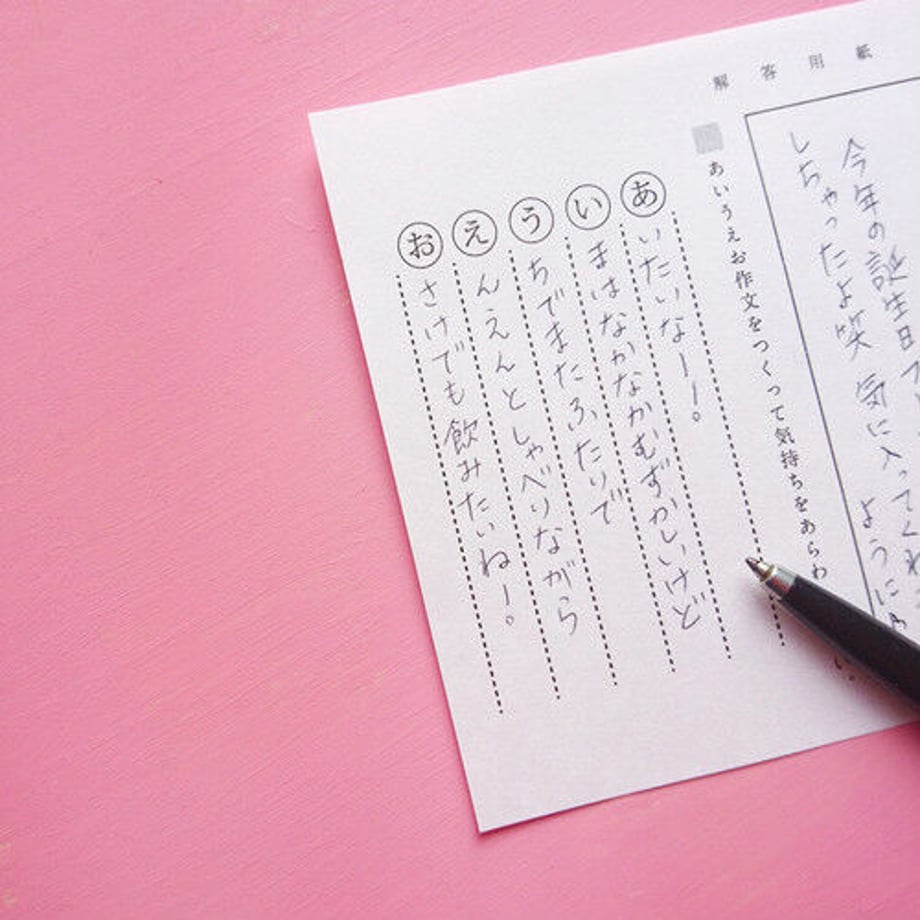 解答用紙
今年の誕生日
しちゃったよ笑 気に入ってくれ
ように
あいうえお作文をつくって気持ちをあらわ
あいたいなー！。
いまはなかなかむずかしいけど
うちでまたふたりで
えんえんとしゃべりながら
おさけでも飲みたいね！。